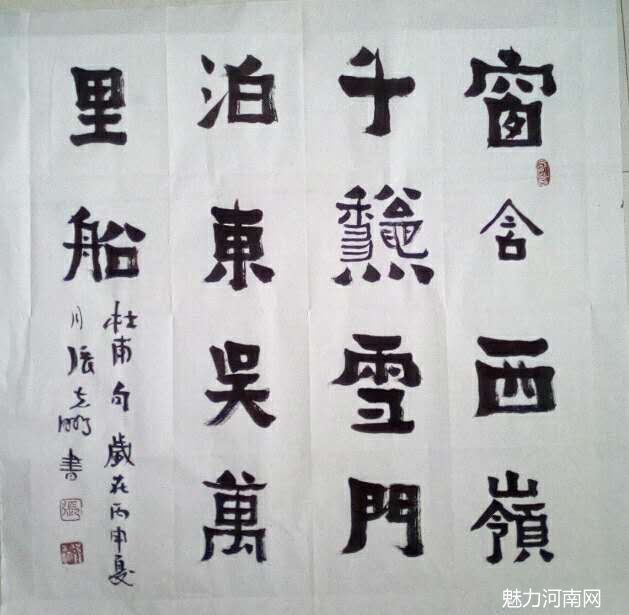 窗含西嶺
千龝雪門
泊東吳萬
里船
杜甫句 歲在丙申夏
月張書
張
魅力河南网